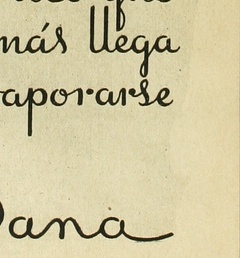 que
más llega
aporarse
ana